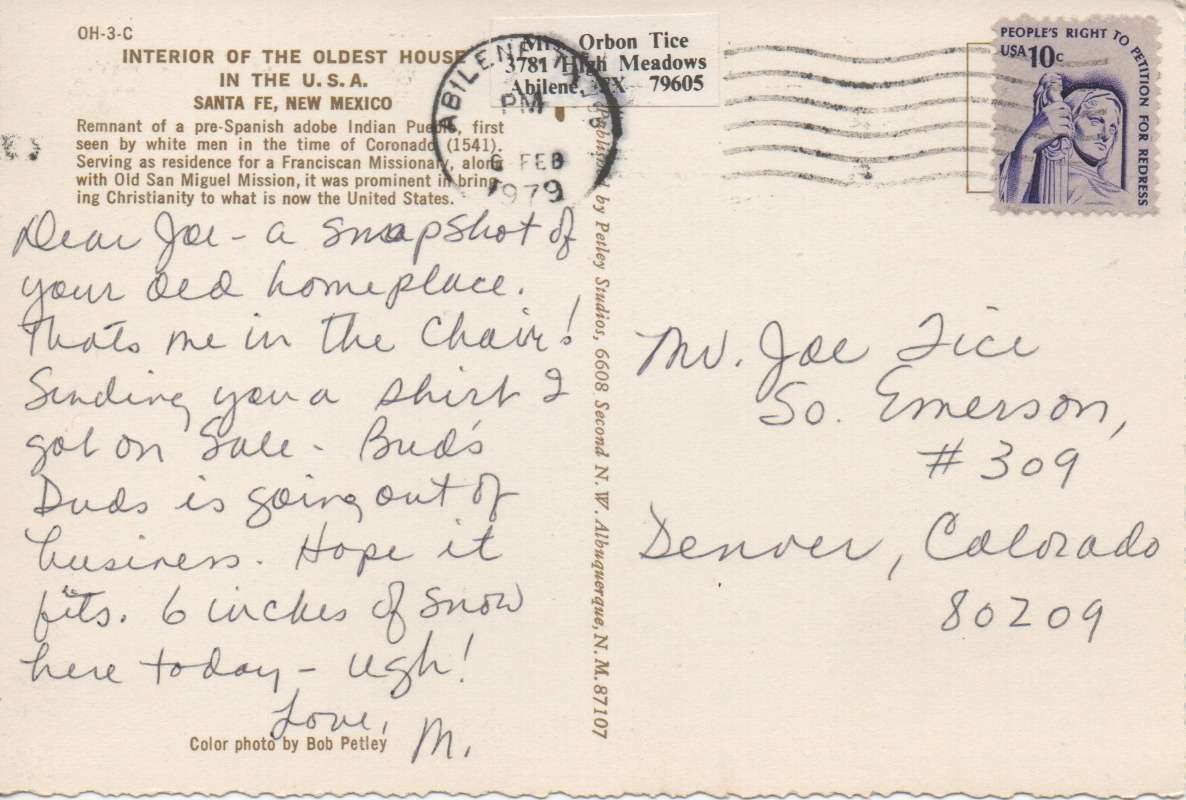 OH-3-C
INTERIOR OF THE OLDEST HOUSE
IN THE U.S.A.
SANTA FE, NEW MEXICO
Remnant of a pre-Spanish adobe Indian Pueblo, first
seen by white men in the time of Coronado (1541).
Serving as residence for a Franciscan Missionary, along
with Old San Miguel Mission, it was prominent in bring-
ing Christianity to what is now the United States.
Dear Joe - a snapshot of
your old homeplace.
Thats me in the Chair!
Sending you a shirt I
got on Sale - Bud's
Duds is going out of
business. Hope it
fits. 6 inches of snow
here today - ugh!
Love,
M.
Color photo by Bob Petley
Published by Petley Studios, 6608 Second N.W. Albuquerque, N.M. 87107
Mrs. Orbon Tice
3781 High Meadows
Abilene, TX 79605
ABILENE, TX
PM
6 FEB
1979
PEOPLE'S RIGHT TO PETITION FOR REDRESS
USA 10c
Mr. Joe Tice
So. Emerson,
#309
Denver, Colorado
80209